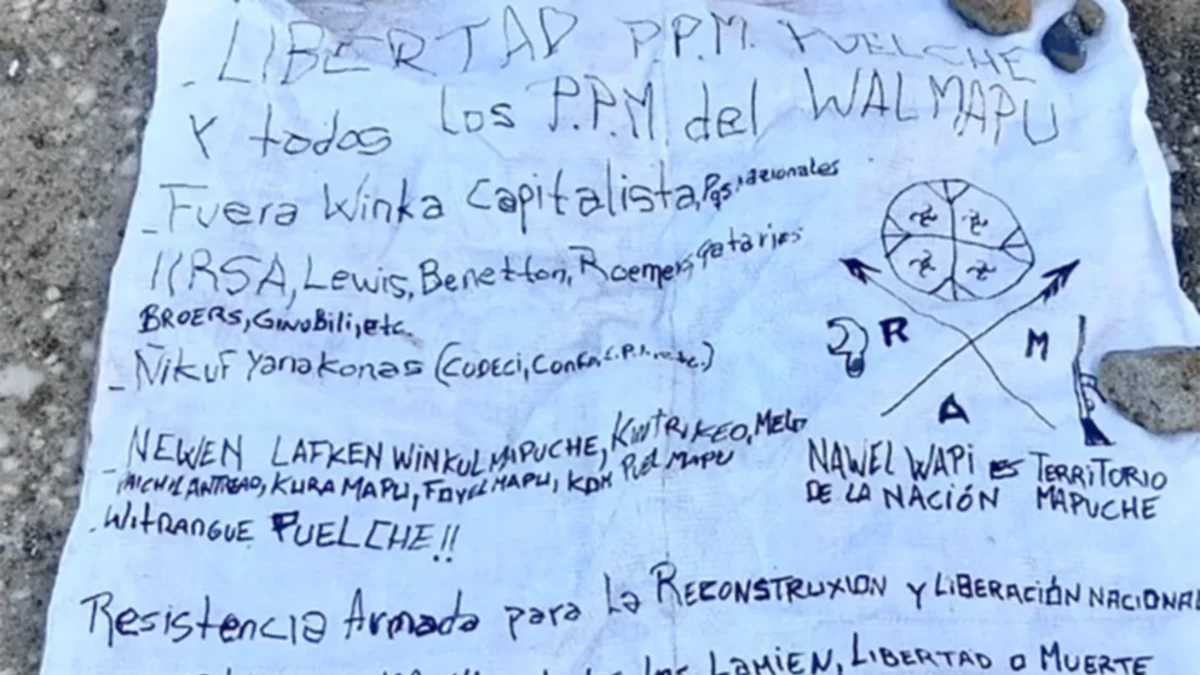 - LIBERTAD P.P.M. PUELCHE
Y todos los P.P.M del WALMAPU
- Fuera Winka Capitalista,
IIRSA, Lewis, Benetton, Roemers, qataries
BROERS, GINOBili, etc.
- Ñikuf Yanakonas (CODECI,
- NEWEN LAFKEN WINKUL MAPUCHE, KWTRIKEO, MELO
KURA MAPU, FOYEL MAPU, KDM PUEL MAPU
- WITRANGUE PUELCHE!!
R M
A
NAWEL WAPI ES TERRITORIO
DE LA NACIÓN MAPUCHE
Resistencia Armada para la RECONSTRUXION y LIBERACIÓN NACIONAL
los LAMIEN, LIBERTAD O MUERTE